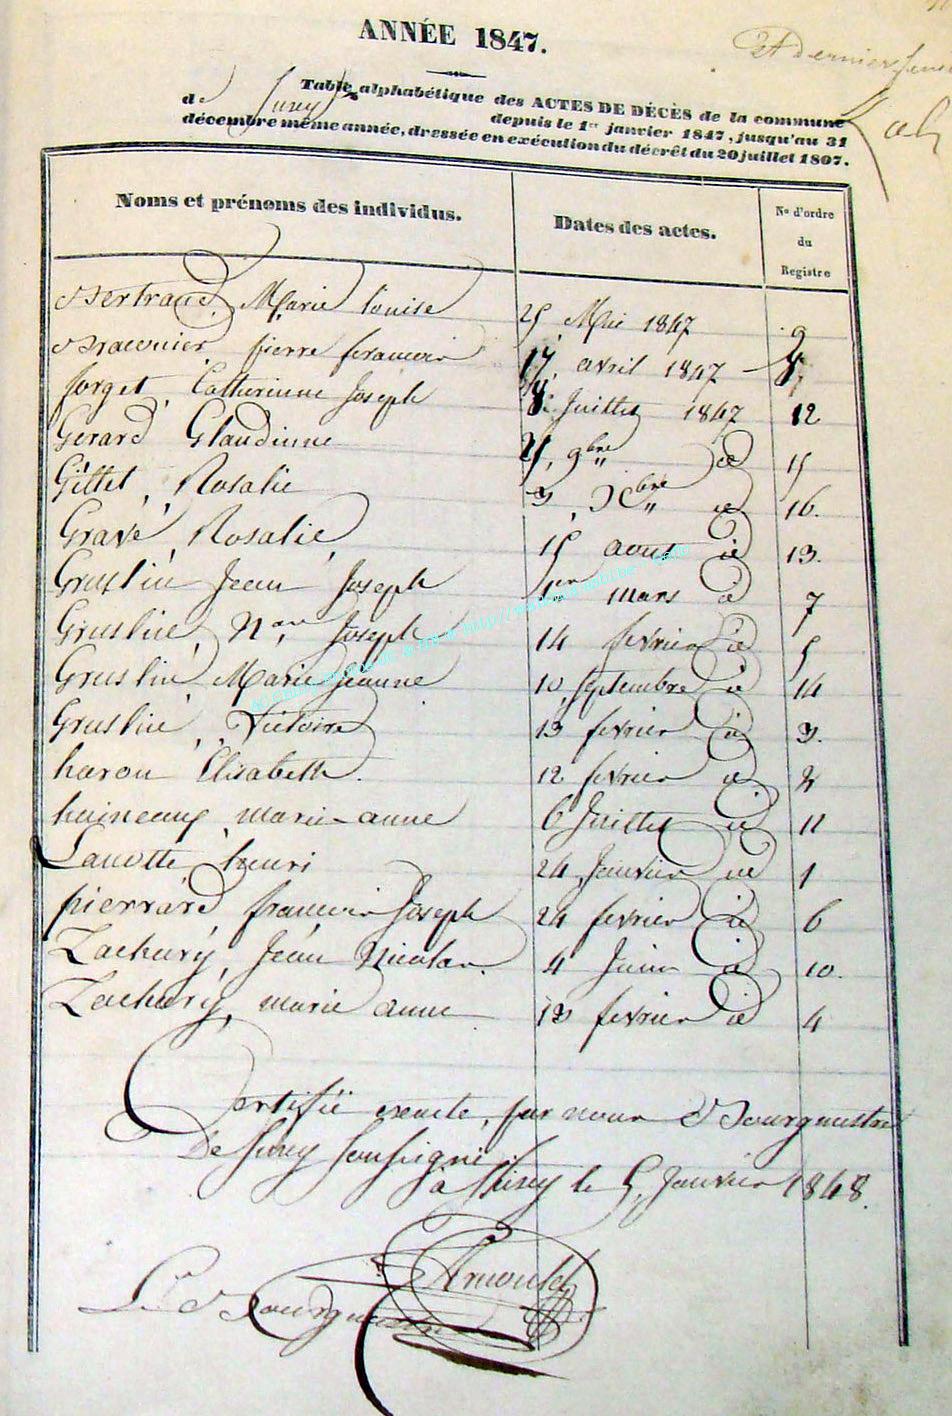 ANNÉE 1847.
et dernier
Table alphabétique des ACTES DE DÉCÈS de la commune
de Surey depuis le 1er janvier 1847, jusqu'au 31
décembre même année, dressée en exécution du décrêt du 20 juillet 1807.
Noms et prénoms des individus. Dates des actes. No d'ordre du Registre
Bertrand, Marie louise 25 Mai 1847 9
Braconier, pierre francois 17, avril 1847 8,
forget, Catherinne Joseph 8. Juillet 1847 12
Gerard Glaudinne 25, 9bre id 15
Gillet, Rosalie 3, Xbre id 16.
Gravé, Rosalie, 15 aout id 13.
Gruslin Jean Joseph 1er mars id 7
Gruslin, Nas Joseph 14 fevrier id 5
Gruslin, Marie Jeanne 10 septembre id 14
Gruslin, Victoire 13 fevrier id 3.
haron Elisabeth. 12 fevrier id 2
huineaux, marie-anne 6 Juillet id 11
Lanotte, henri 24 Janvier id 1
pierrard, francois Joseph 24 fevrier id 6
Zachary, Jean Nicolas. 4 Juin id 10.
Zachary, marie anne 13 fevrier id 4
Certifié exacte, par nous Bourgmestre
De Surey Soussigné.
à Surey le 5, Janvier 1848.
Le Bourgmestre
Arnould